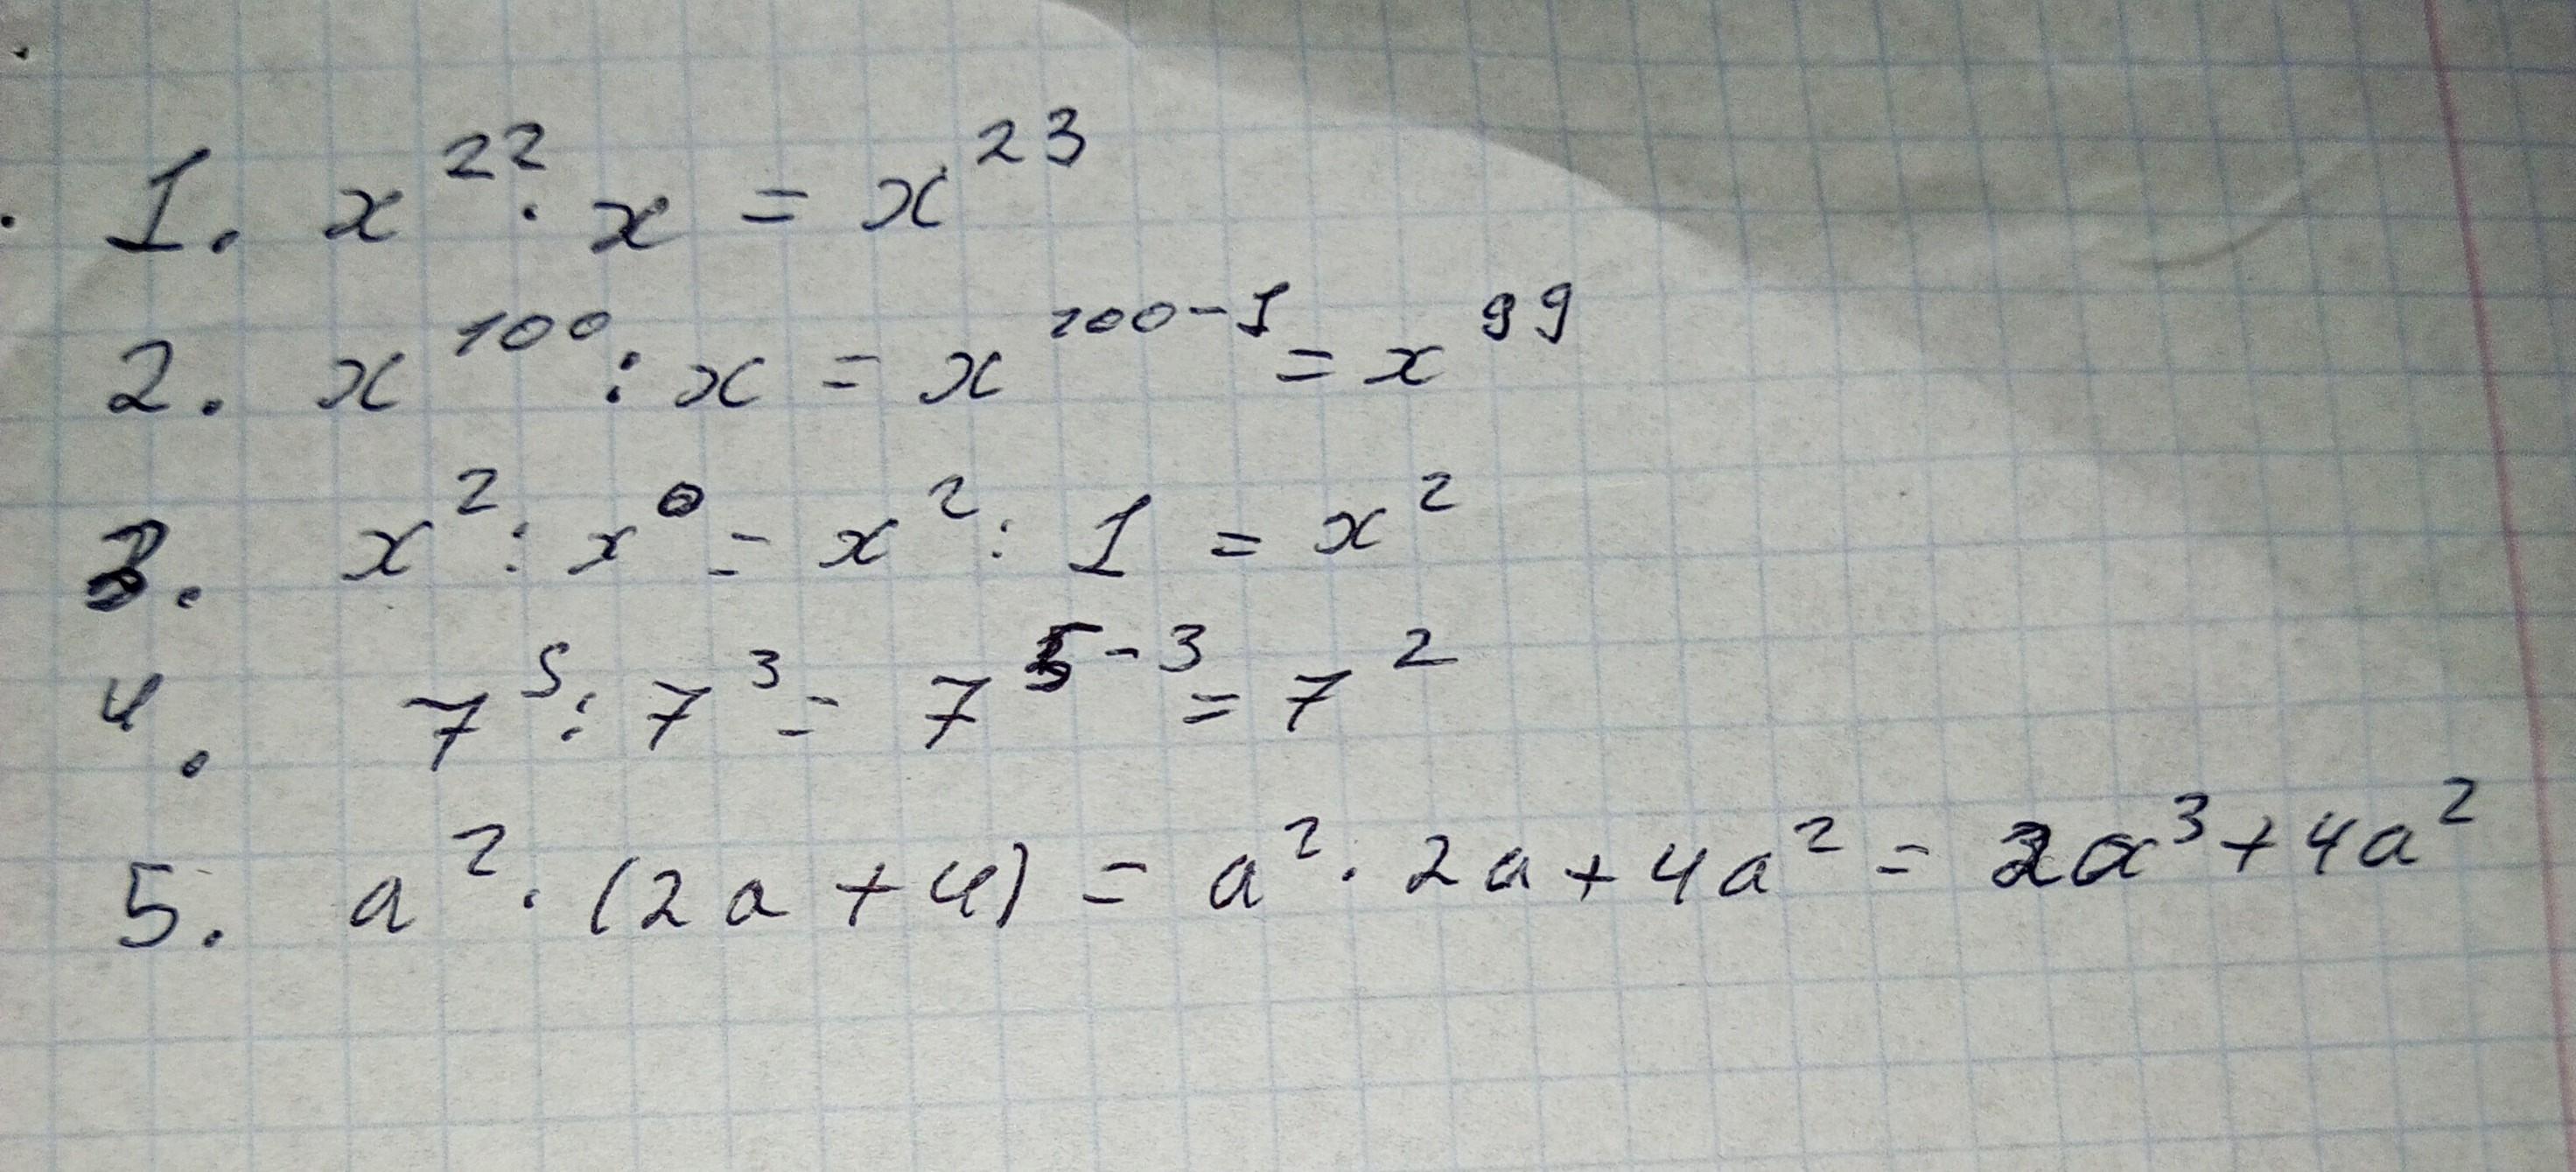 1. x²² · x = x²³
2. x¹⁰⁰ : x = x¹⁰⁰⁻¹ = x⁹⁹
3. x² : x⁰ = x² : 1 = x²
4. 7⁵ : 7³ = 7⁵⁻³ = 7²
5. a² · (2a + 4) = a² · 2a + 4a² = 2a³ + 4a²